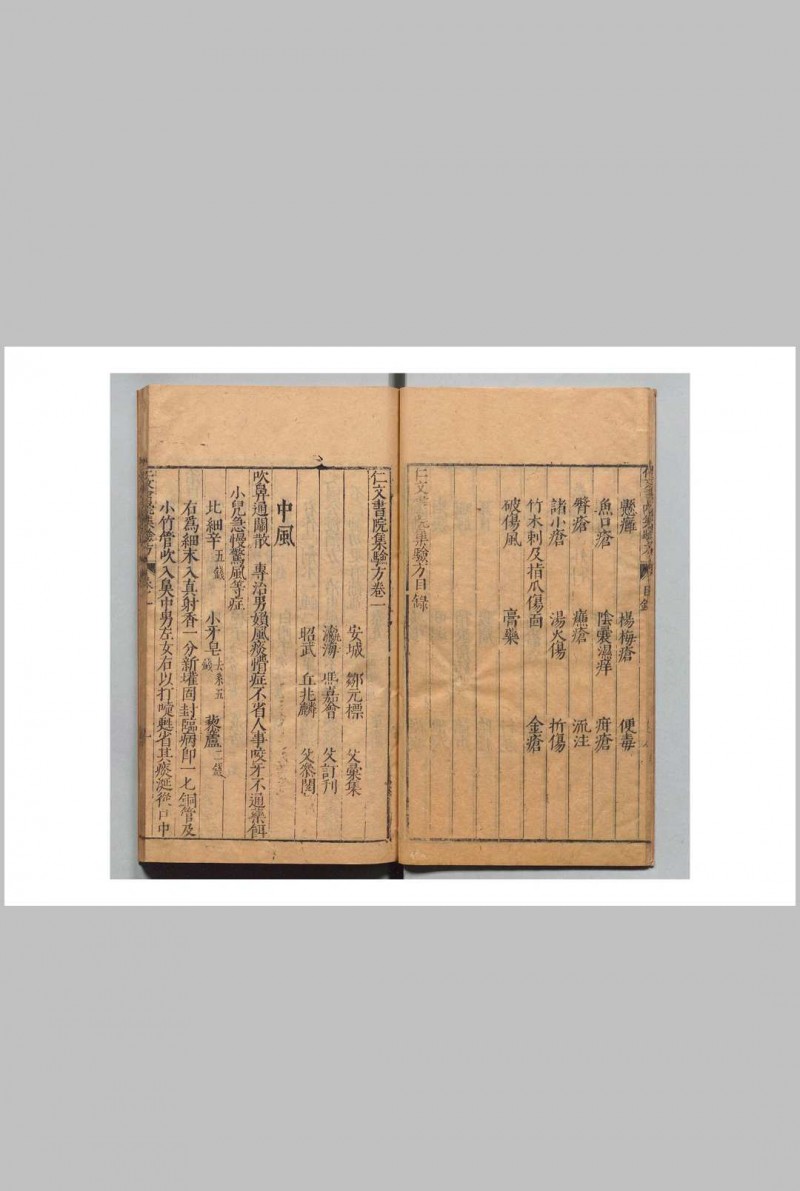 懸癰 楊梅瘡 便毒
魚口瘡 陰囊濕痒 疳瘡
臁瘡 㿈瘡 流注
諸小瘡 湯火傷 折傷
竹木刺及指爪傷面 金瘡
破傷風 膏藥
仁文書院集驗方目錄
仁文書院集驗方卷一
安城 鄒元標 父彙集
瀛海 馮嘉會 父訂刊
昭武 丘兆麟 父叅閱
中風
吹鼻通關散 專治男婦風痰潮症不省人事咬牙不通藥餌
小兒急慢驚風等症
比細辛五錢 小牙皂去糸五錢 藜蘆二錢
右爲細末入真射香一分新罐固封臨病卽一匕銅管及
小竹管吹入鼻中男左女右以打嚏甦省其痰涎從口中
仁文書院集驗方 卷一